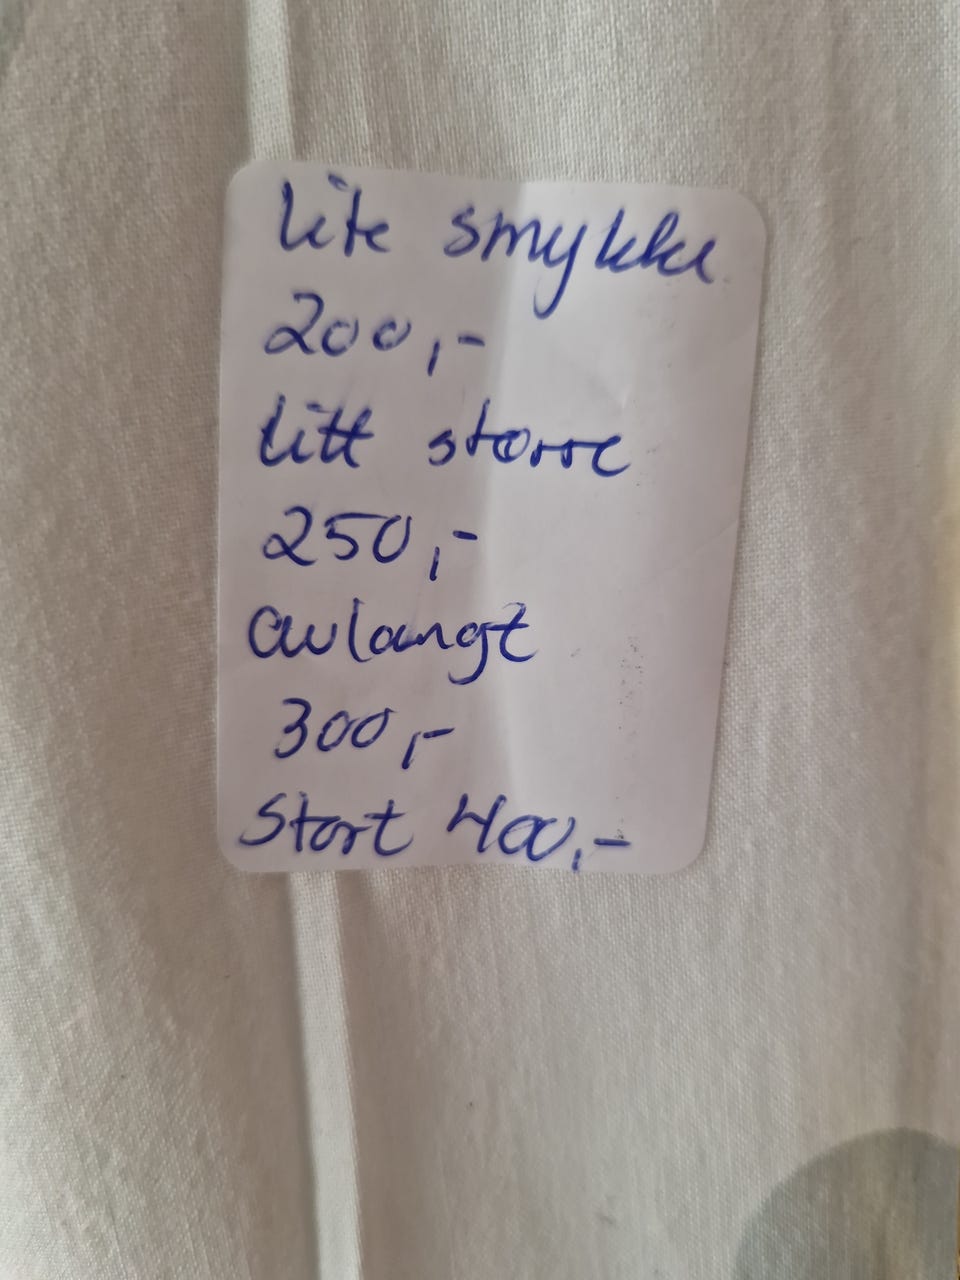 lite smykke
200,-
litt større
250,-
avlangt
300,-
Stort 400,-